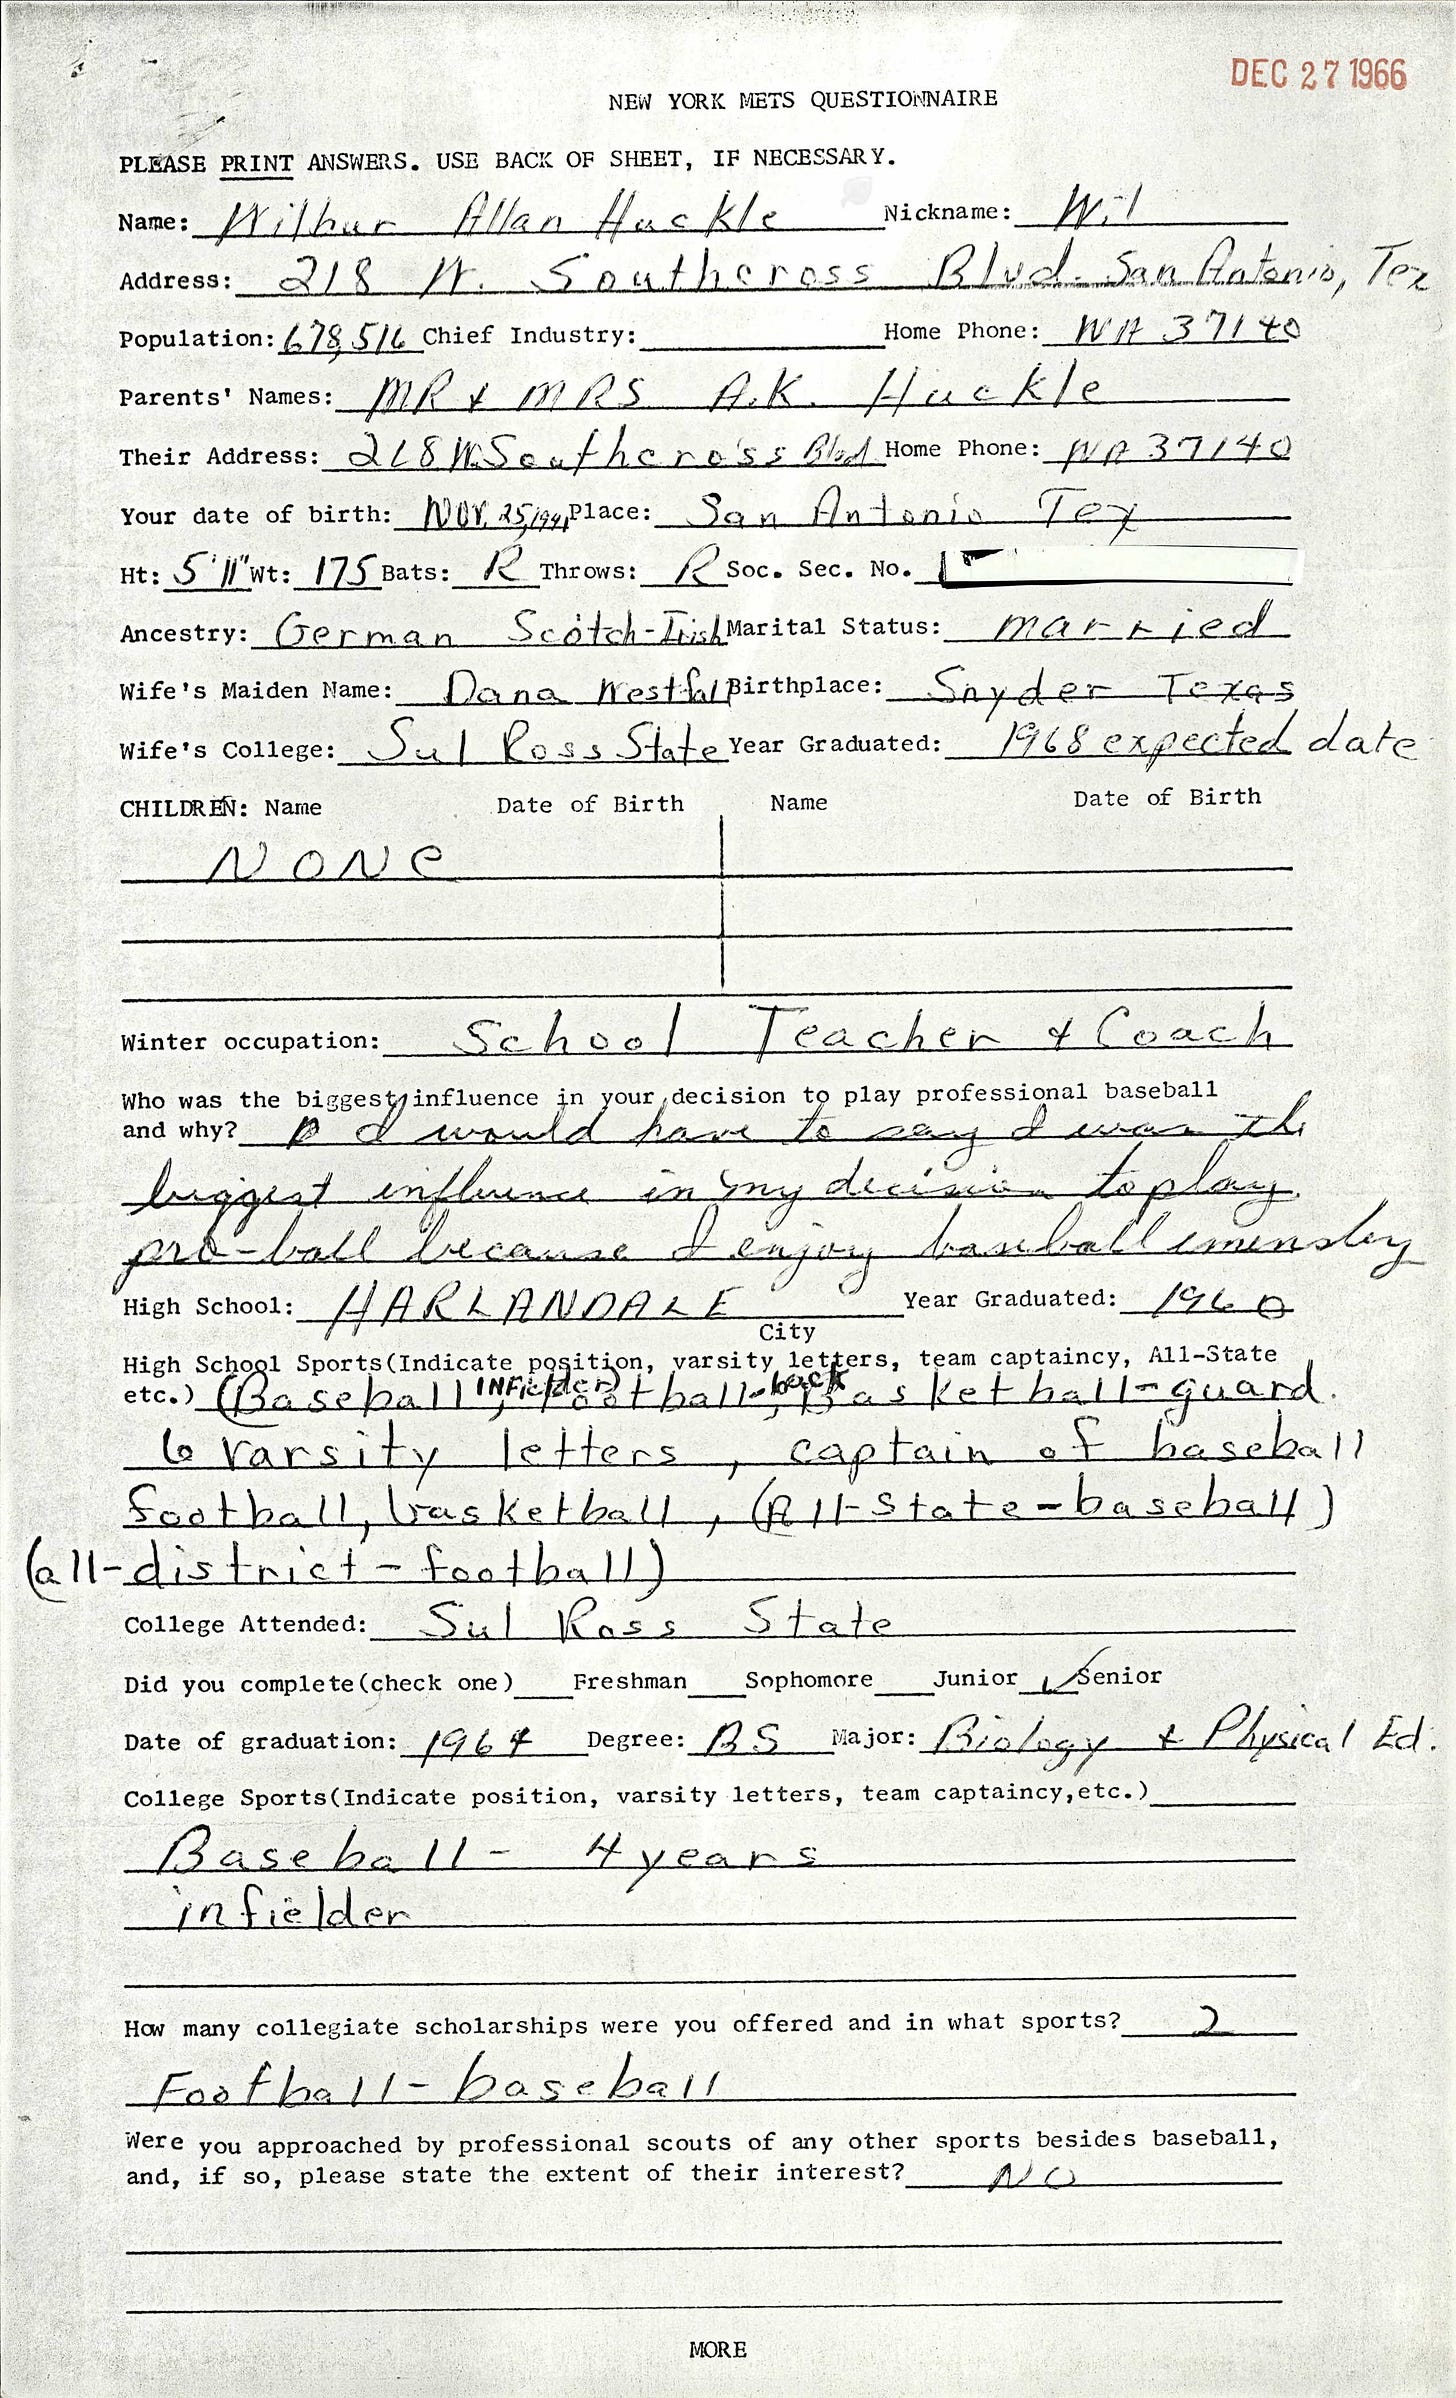 DEC 27 1966
NEW YORK METS QUESTIONNAIRE
PLEASE PRINT ANSWERS. USE BACK OF SHEET, IF NECESSARY.
Name: Wilbur Allan Huckle Nickname: Wil
Address: 218 W. Southcross Blvd. San Antonio, Tex
Population: 678,516 Chief Industry: Home Phone: WA 37140
Parents' Names: MR & MRS A.K. Huckle
Their Address: 218 W. Southcross Blvd Home Phone: WA 37140
Your date of birth: Nov. 25, 1941 Place: San Antonio Tex
Ht: 5'11" Wt: 175 Bats: R Throws: R Soc. Sec. No.
Ancestry: German Scotch-Irish Marital Status: married
Wife's Maiden Name: Dana Westfall Birthplace: Snyder Texas
Wife's College: Sul Ross State Year Graduated: 1968 expected date
CHILDREN: Name Date of Birth Name Date of Birth
NONe
Winter occupation: School Teacher & Coach
Who was the biggest influence in your decision to play professional baseball
and why? I would have to say I was the
biggest influence in my decision to play
pro-ball because I enjoy baseball imensley
High School: HARLANDALE Year Graduated: 1960
City
High School Sports(Indicate position, varsity letters, team captaincy, All-State
etc.) (Baseball INFielder), Football-back, Basketball-guard.
6 varsity letters, captain of baseball
football, basketball, (All-State-baseball)
(all-district-football)
College Attended: Sul Ross State
Did you complete(check one) Freshman Sophomore Junior ✓ Senior
Date of graduation: 1964 Degree: BS Major: Biology & Physical Ed.
College Sports(Indicate position, varsity letters, team captaincy,etc.)
Baseball - 4 years
infielder
How many collegiate scholarships were you offered and in what sports? 2
Football - baseball
Were you approached by professional scouts of any other sports besides baseball,
and, if so, please state the extent of their interest? NO
MORE